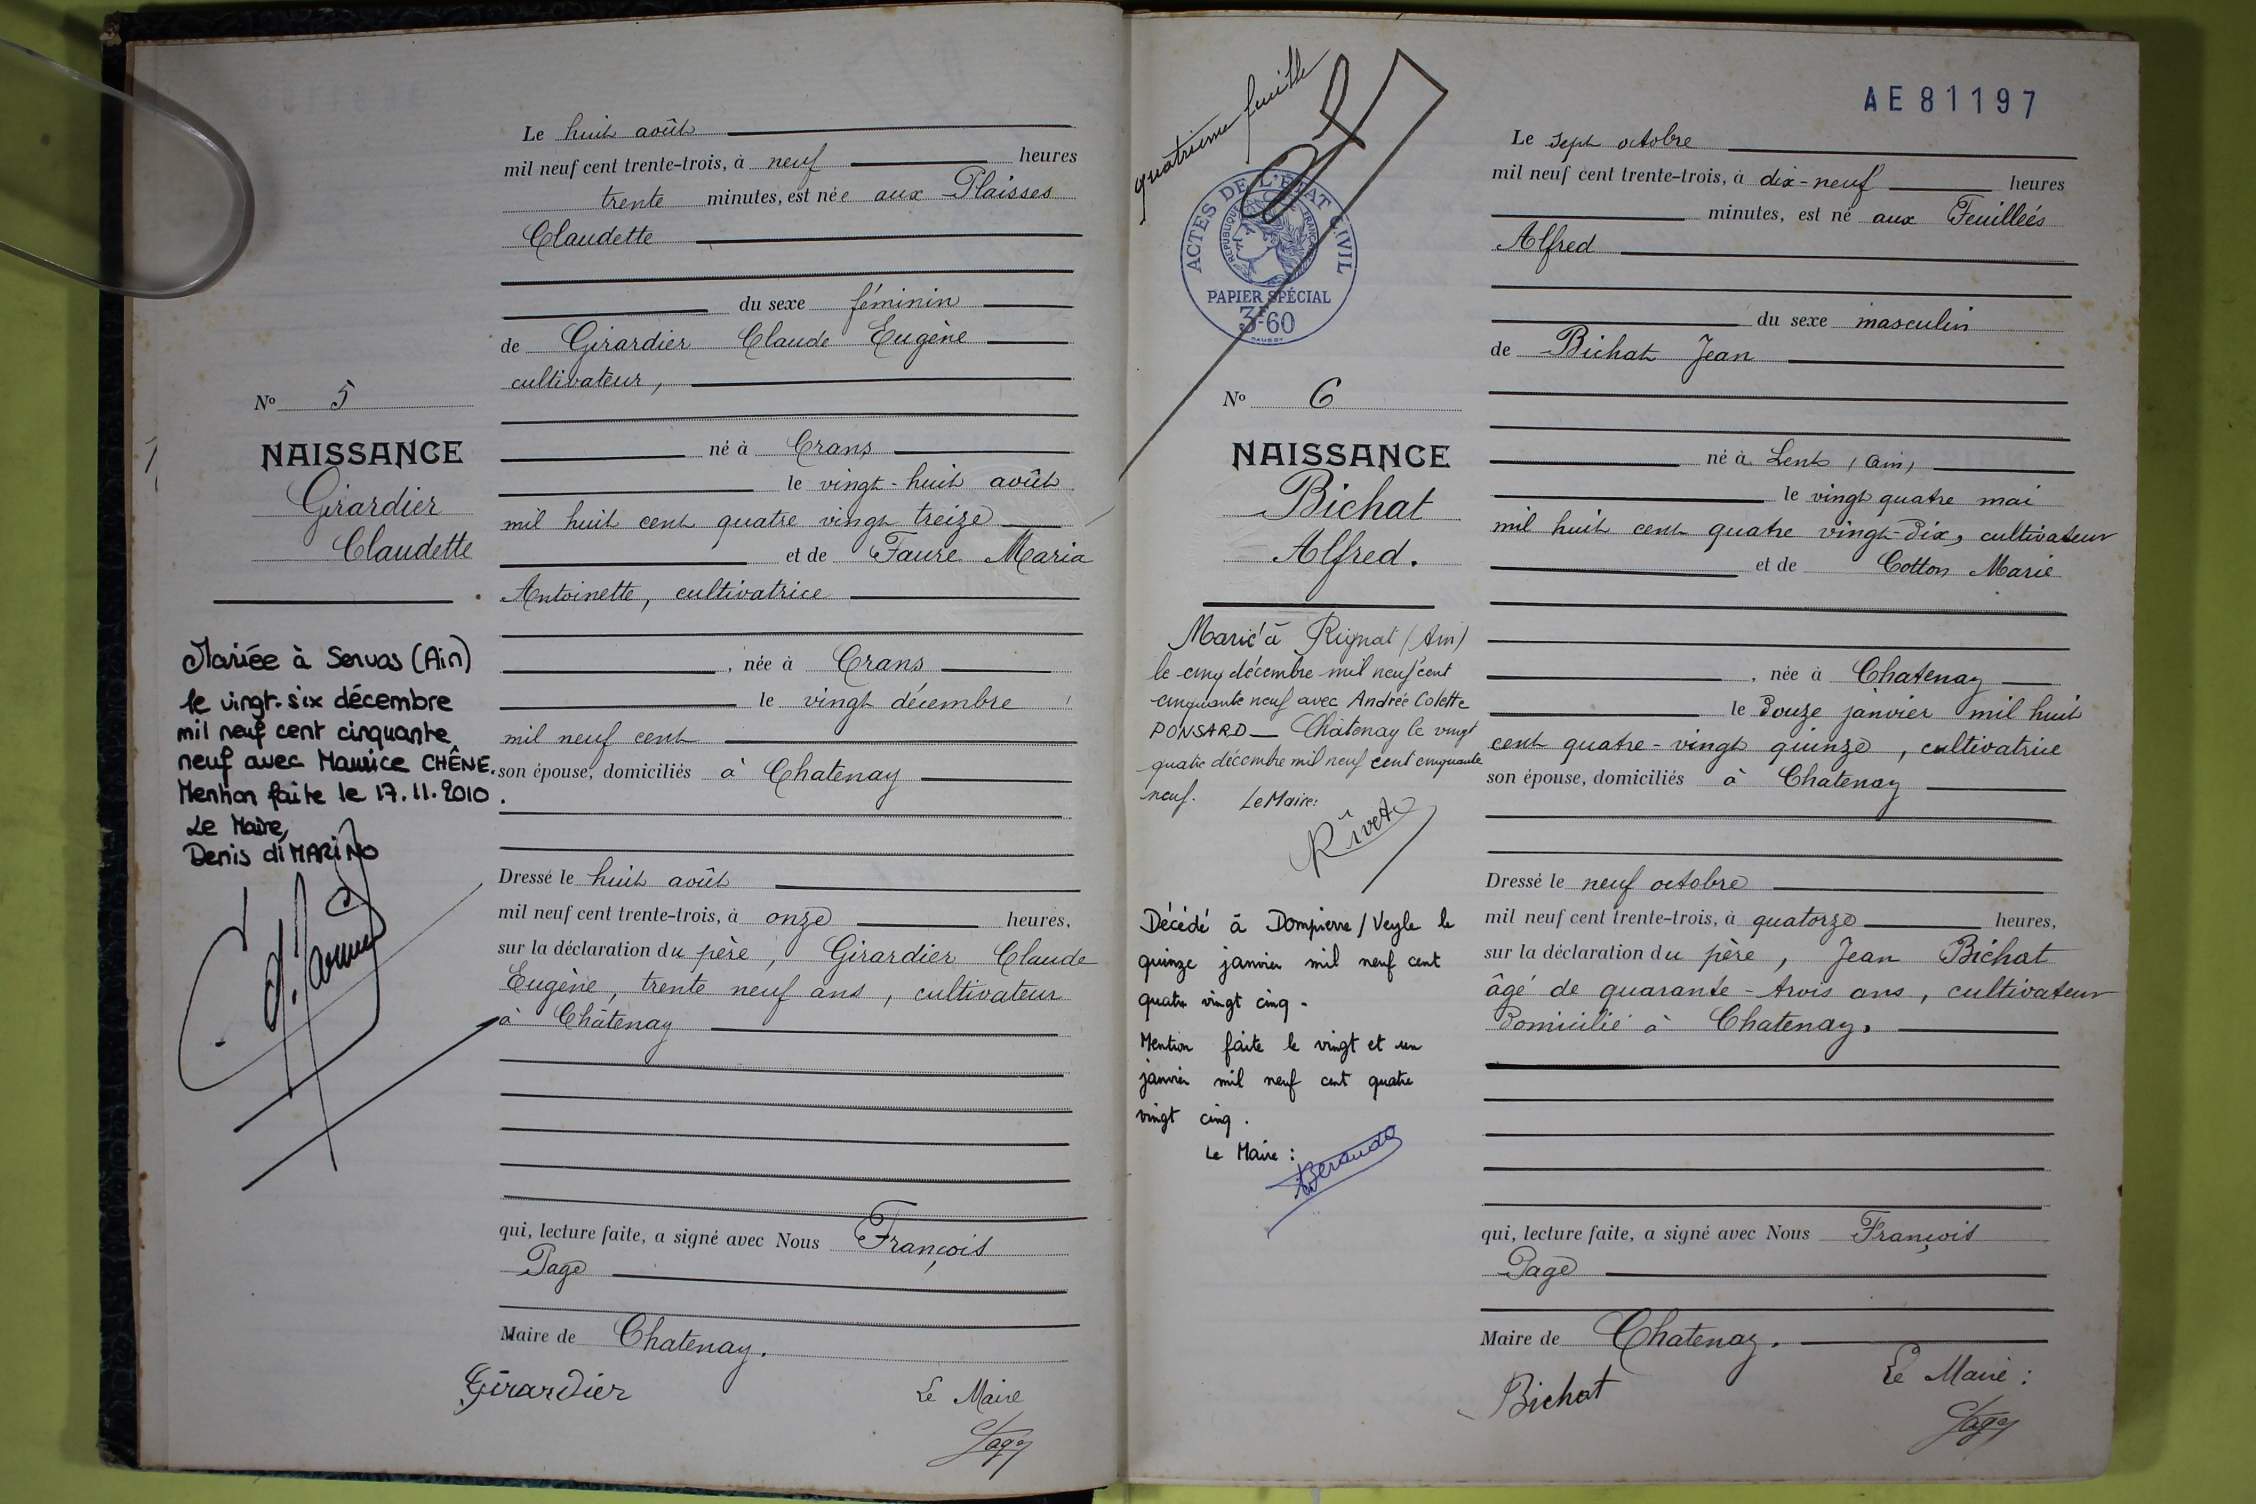 Le huit août
mil neuf cent trente-trois, à neuf heures
trente minutes, est née aux Plaisses
Claudette
du sexe féminin
de Girardier Claude Eugène
cultivateur,
né à Crans
le vingt-huit août
mil huit cent quatre vingt treize
et de Faure Maria
Antoinette, cultivatrice
, née à Crans
le vingt décembre
mil neuf cent
son épouse, domiciliés à Chatenay
Dressé le huit août
mil neuf cent trente-trois, à onze heures,
sur la déclaration du père, Girardier Claude
Eugène, trente neuf ans, cultivateur
à Châtenay
qui, lecture faite, a signé avec Nous François
Page
Maire de Chatenay.
Girardier Le Maire
Page
No 5
NAISSANCE
Girardier
Claudette
Mariée à Servas (Ain)
le vingt-six décembre
mil neuf cent cinquante
neuf avec Maurice CHÊNE.
Mention faite le 17.11.2010.
Le Maire,
Denis di MARINO
quatrième feuille
ACTES DE L'ETAT CIVIL
REPUBLIQUE FRANÇAISE
PAPIER SPÉCIAL
3F60
AE81197
No 6
NAISSANCE
Bichat
Alfred.
Marié à Rignat (Ain)
le cinq décembre mil neuf cent
cinquante neuf avec Andrée Colette
PONSARD — Châtenay le vingt
quatre décembre mil neuf cent cinquante
neuf. Le Maire:
Rivet
Décédé à Dompierre/Veyle le
quinze janvier mil neuf cent
quatre vingt cinq -
Mention faite le vingt et un
janvier mil neuf cent quatre
vingt cinq.
Le Maire :
Le sept octobre
mil neuf cent trente-trois, à dix-neuf heures
minutes, est né aux Feuilleés
Alfred
du sexe masculin
de Bichat Jean
né à Lent (Ain)
le vingt quatre mai
mil huit cent quatre vingt-dix, cultivateur
et de Cotton Marie
, née à Chatenay
le douze janvier mil huit
cent quatre-vingt quinze, cultivatrice
son épouse, domiciliés à Chatenay
Dressé le neuf octobre
mil neuf cent trente-trois, à quatorze heures,
sur la déclaration du père, Jean Bichat
âgé de quarante-trois ans, cultivateur
domicilié à Chatenay.
qui, lecture faite, a signé avec Nous François
Page
Maire de Chatenay.
Bichat Le Maire :
Page